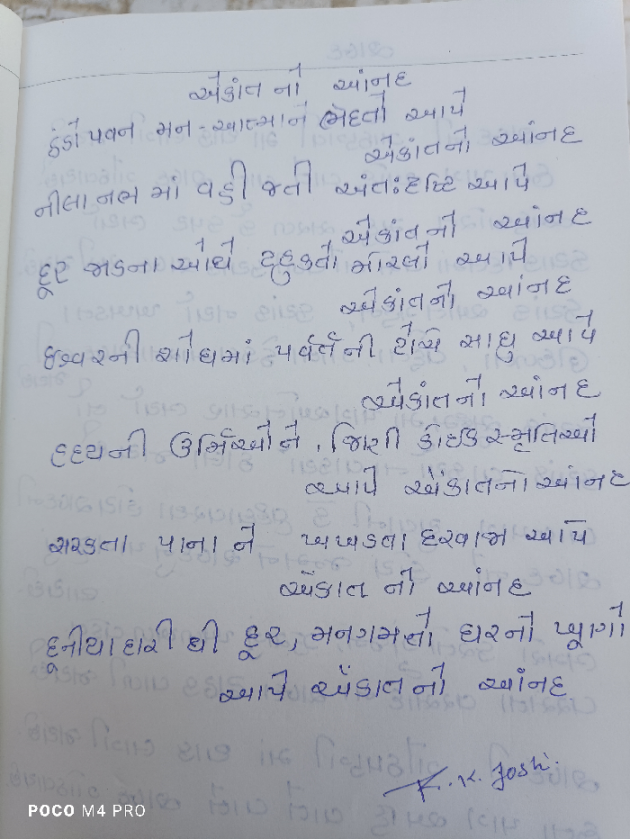 એકાંત નો આંનદ
ઠંડો પવન મન-આત્માને ભેદતો આપે
એકાંતનો આંનદ
નીલા નભ માં વહી જતી અંતઃદ્રષ્ટિ આપે
એકાંતનો આંનદ
દૂર ઝાડના ઓથે ટહુકતો મોરલો આપે
એકાંતનો આંનદ
ઇશ્વરની શોધમાં પર્વતની ટોચે સાધુ આપે
એકાંતનો આંનદ
હ્રદયની ઉર્મિઓને, જિણી કોઇક સ્મૃતિઓ
આપે એકાતનો આંનદ
સરકતા પાના ને ખખડતા દરવાજા આપે
એકાત નો આંનદ
દૂનીયાદારી થી દૂર, મનગમતો ઘરનો ખૂણો
આપે એકાતનો આંનદ
K. K. Joshi.
POCO M4 PRO